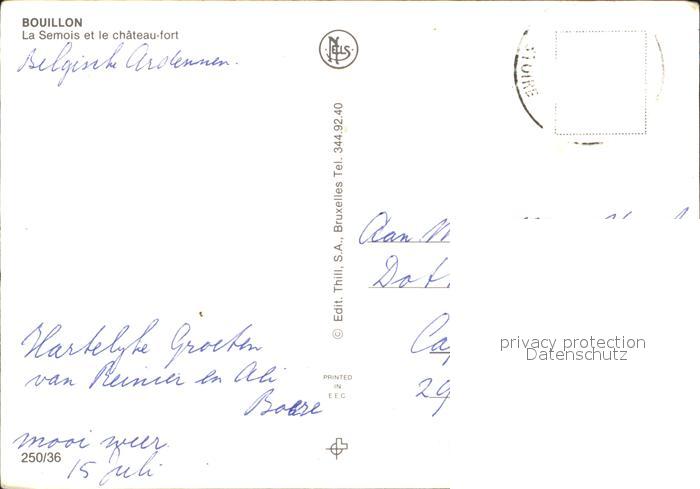 BOUILLON
La Semois et le château-fort
Belgische Ardennen.
NELS
© Edit. Thill, S.A., Bruxelles Tel. 344.92.40
Aan
Hartelyke Groeten
van Reinier en Ali
Boere
mooi weer
15 Juli
250/36
PRINTED
IN
E.E.C.
29
privacy protection
Datenschutz